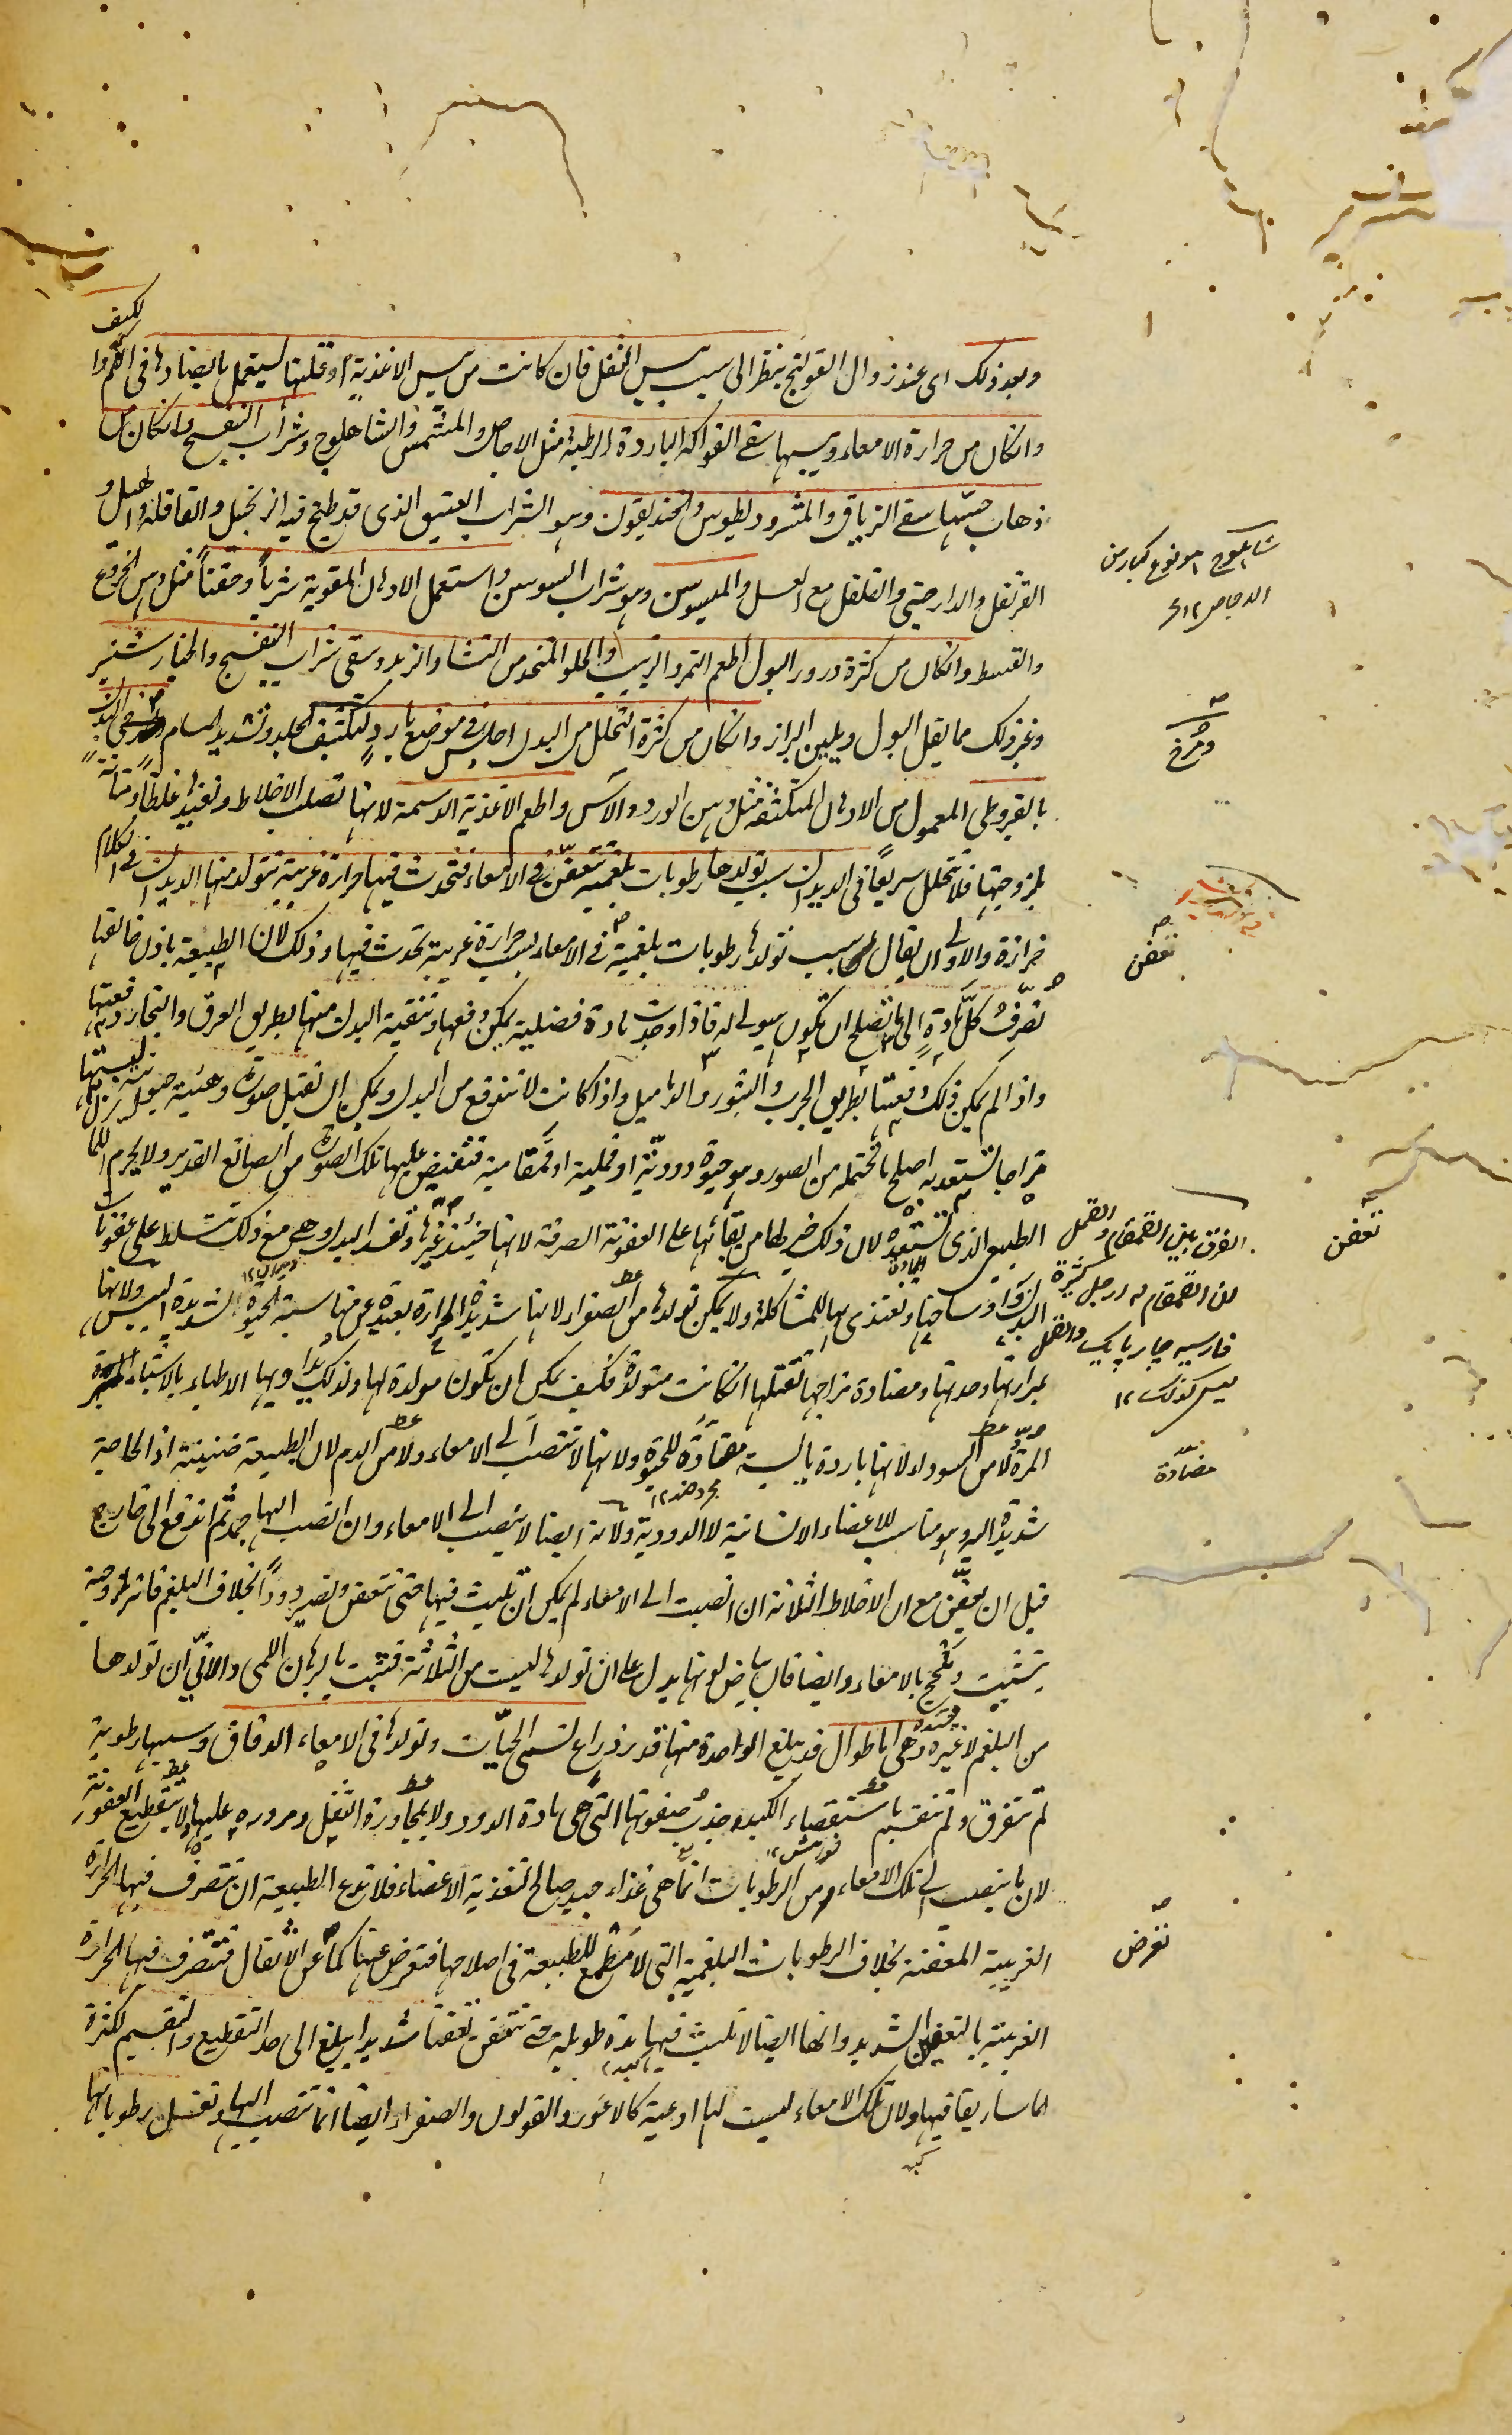 وبعد ذلك اى عند زوال القولنج ينظر الى سبب يبس الثفل فان كانت من يبس الاغذية او قلتها ليستعمل ما يضادها فى الكم والكيف
وانكان من حرارة الامعاء ويبسها سقى الفواكه الباردة الرطبة مثل الاجاص والمشمش والشاهلوج وشراب البنفسج وانكان من
ذهاب حسّها سقى الترياق والمثروديطوس والخنديقون وهو الشراب العتيق الذى قد طبخ فيه الزنجبيل والقاقلة والهيل و
القرنفل والدارچينى والفلفل مع العسل والميسوسن وهو شراب السوسن واستعمل الادهان المقوية شرباً وحقناً مثل دهن الخروع
والقسط وانكان من كثرة درور البول اطعم التمر والزبيب والحلو المتخذ من النشا والزبد وسقى شراب البنفسج والخيارشنبر
وغير ذلك مما يقل البول ويلين البراز وانكان من كثرة التحلل من البدن اجلس فى موضع بارد ليتكثف الجلد وتشديد المسام ومرخ البدن
بالقيروطى المعمول من الادهان المتكثفة مثل دهن الورد والآس واطعم الاغذية الدسمة لانها تصلب الاخلاط وتفيدها غلظاً ومتانة
بلزوجتها فلا تتحلل سريعاً فى الديدان سبب تولدها رطوبات بلغمية تتعفن فى الامعاء فتحدث فيها حرارة غريبة تتولد منها الديدان فى الكلام
حزازة والاولى ان يقال سبب تولدها رطوبات بلغمية فى الامعاء بسبب حرارة غريبة تحدث فيها وذلك لان الطبيعة باذن خالقها
تصرف كل مادة الى ما تصلح ان تكون هيولى له فاذا وجدت مادة فضلية يمكن دفعها وتنقية البدن منها بطريق العرق والبخار دفعتها
واذا لم يمكن ذلك دفعتها بطريق الجرب والبثور والدماميل واذا كانت لا تندفع من البدن ويمكن ان تقبل صورة وهيئة حيوانية
مزاجا تستعد به اصلح ما تحتمله من الصور وهو حيوة دودية او قملية او قمقامية فتفيض عليها تلك الصورة من الصانع القدير ولا يحرم الكمال
الطبيعى الذى تستعده لان ذلك خير لها من بقائها على العفونة الصرفة لانها حينئذ تغيرها وتفسد البدن وهى مع ذلك تتسلط على عفونات
البدن واوساخها وتغتذى بها للمشاكلة ولا يمكن تولدها من الصفراء لانها شديدة الحرارة بعيدة عن مناسبة الحيوة شديدة اليبس ولانها
بمرارتها وحدتها ومضادة مزاجها تقتلها انكانت متولدة فكيف يمكن ان تكون مولدة لها ولذلك يداويها الاطباء بالاشياء المرة
المرة ولا من السوداء لانها باردة يابسة مضادة للحيوة ولانها لا تنصب الى الامعاء ولا من الدم لان الطبيعة ضنينة اذ الحاجة
شديدة اليه وهو مناسب للاعضاء الانسانية لا الدودية ولانه ايضا لا ينصب الى الامعاء وان انصب اليها جمد ثم اندفع الى خارج
قبل ان يعفن مع ان الاخلاط الثلاثة ان انصبت الى الامعاء لم يمكن ان تلبث فيها حتى تتعفن وتصير دوداً بخلاف البلغم فانه للزوجته
يتشبث ويلحج بالامعاء وايضا فان بياض لونها يدل على ان تولدها ليست من الثلاثة فثبت بالبرهان اللمى والانى ان تولدها
من البلغم لا غيره وهى اما طوال قد يبلغ الواحدة منها قدر ذراع تسمى الحيات وتولدها فى الامعاء الدقاق وسببها رطوبة
لم تتفرق ولم تنقسم باستقصاء الكبد وجذب صفوتها التى هى مادة الدود ولا بمجاورة الثفل ومروره عليها ولا بتقطيع العفونة
لان ما ينصب الى تلك الامعاء من الرطوبات انما هى غذاء جيد صالح لتغذية الاعضاء فلا تدع الطبيعة ان تتصرف فيها الحرارة
الغريبة المعفنة بخلاف الرطوبات البلغمية التى لا مطمع للطبيعة فى اصلاحها فتعرض عنها كما عن الاثقال فتتصرف فيها الحرارة
الغريبة بالتعفن الشديد وانها ايضا لا تلبث فيها مدة طويلة حتى تتعفن تعفناً شديدا يبلغ الى حد التقطيع والتقسيم لكثرة
الماساريقا فيها ولان تلك الامعاء ليست لها اوعية كالاعور والقولون والصفراء ايضا انما تنصب اليها وتغسل رطوباتها
شاهلوج هو نوع كبار من
الاجاص ١٢
ومُرخ
تعفن
الفرق بين القمقام والقمل
ان القمقام له ارجل كثيرة
مضادة
تعفن
تعرض